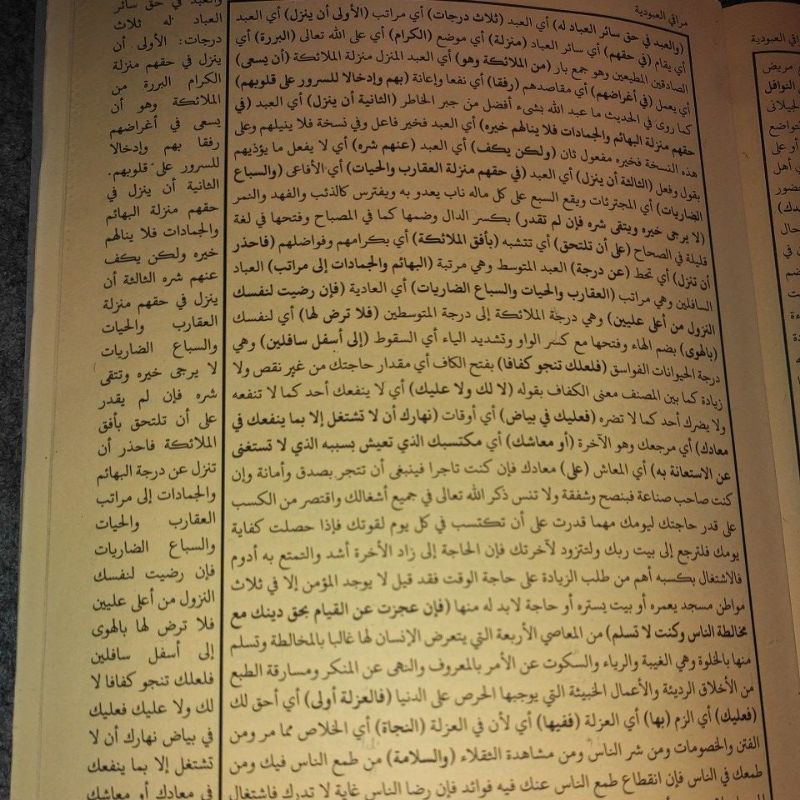 مراقي العبودية
(والعبد في حق سائر العباد له) أي العبد (ثلاث درجات) أي مراتب (الأولى أن ينزل) أي العبد
أي يقام (في حقهم) أي سائر العباد (منزلة) أي موضع (الكرام) أي على الله تعالى (البررة) أي
الصادقين المطيعين وهو جمع بار (من الملائكة وهو) أي العبد المنزل منزلة الملائكة (أن يسعى)
أي يعمل (في أغراضهم) أي مقاصدهم (رفقا) أي نفعا وإعانة (بهم وإدخالا للسرور على قلوبهم)
كما روي في الحديث ما عبد الله بشيء أفضل من جبر الخاطر (الثانية أن ينزل) أي العبد (في
حقهم منزلة البهائم والجمادات فلا ينالهم خيره) أي العبد فخير فاعل وفي نسخة فلا ينيلهم وعلى
هذه النسخة فخيره مفعول ثان (ولكن يكف) أي العبد (عنهم شره) أي لا يفعل ما يؤذيهم
بقول وفعل (الثالثة أن ينزل) أي العبد (في حقهم منزلة العقارب والحيات) أي الأفاعي (والسباع
الضاريات) أي المجترئات ويقع السبع على كل ماله ناب يعدو به ويفترس كالذئب والفهد والنمر
(لا يرجى خيره ويتقى شره فإن لم تقدر) بكسر الدال وضمها كما في المصباح وفتحها في لغة
قليلة في الصحاح (على أن تلتحق) أي تتشبه (بأفق الملائكة) أي بكرامهم وفواضلهم (فاحذر
أن تنزل) أي تحط (عن درجة) العبد المتوسط وهي مرتبة (البهائم والجمادات إلى مراتب) العباد
السافلين وهي مراتب (العقارب والحيات والسباع الضاريات) أي العادية (فإن رضيت لنفسك
النزول من أعلى عليين) وهي درجة الملائكة إلى درجة المتوسطين (فلا ترض لها) أي لنفسك
(بالهوى) بضم الهاء وفتحها مع كسر الواو وتشديد الياء أي السقوط (إلى أسفل سافلين) وهي
درجة الحيوانات الفواسق (فلعلك تنجو كفافا) بفتح الكاف أي مقدار حاجتك من غير نقص ولا
زيادة كما بين المصنف معنى الكفاف بقوله (لا لك ولا عليك) أي لا ينفعك أحد كما لا تنفعه
ولا يضرك أحد كما لا تضره (فعليك في بياض) أي أوقات (نهارك أن لا تشتغل إلا بما ينفعك في
معادك) أي مرجعك وهو الآخرة (أو معاشك) أي مكتسبك الذي تعيش بسببه الذي لا تستغنى
عن الاستعانة به) أي المعاش (على) معادك فإن كنت تاجرا فينبغي أن تتجر بصدق وأمانة وإن
كنت صاحب صناعة فبنصح وشفقة ولا تنس ذكر الله تعالى في جميع أشغالك واقتصر من الكسب
على قدر حاجتك ليومك مهما قدرت على أن تكتسب في كل يوم لقوتك فإذا حصلت كفاية
يومك فلترجع إلى بيت ربك ولتتزود لآخرتك فإن الحاجة إلى زاد الآخرة أشد والتمتع به أدوم
فالاشتغال بكسبه أهم من طلب الزيادة على حاجة الوقت فقد قيل لا يوجد المؤمن إلا في ثلاث
مواطن مسجد يعمره أو بيت يستره أو حاجة لابد له منها (فإن عجزت عن القيام بحق دينك مع
مخالطة الناس وكنت لا تسلم) من المعاصي الأربعة التي يتعرض الإنسان لها غالبا بالمخالطة وتسلم
منها بالخلوة وهي الغيبة والرياء والسكوت عن الأمر بالمعروف والنهى عن المنكر ومسارقة الطبع
من الأخلاق الرديئة والأعمال الخبيثة التي يوجبها الحرص على الدنيا (فالعزلة أولى) أي أحق لك
(فعليك) أي الزم (بها) أي العزلة (ففيها) أي لأن في العزلة (النجاة) أي الخلاص مما مر ومن
الفتن والخصومات ومن شر الناس ومن مشاهدة الثقلاء (والسلامة) من طمع الناس فيك ومن
طمعك في الناس فإن انقطاع طمع الناس عنك فيه فوائد فإن رضا الناس غاية لا تدرك فاشتغال
والعبد في حق سائر
العباد له ثلاث
درجات: الأولى أن
ينزل في حقهم منزلة
الكرام البررة من
الملائكة وهو أن
يسعى في أغراضهم
رفقا بهم وإدخالا
للسرور على قلوبهم.
الثانية أن ينزل في
حقهم منزلة البهائم
والجمادات فلا ينالهم
خيره ولكن يكف
عنهم شره الثالثة أن
ينزل في حقهم منزلة
العقارب والحيات
والسباع الضاريات
لا يرجى خيره وتتقى
شره فإن لم يقدر
على أن تلتحق بأفق
الملائكة فاحذر أن
تنزل عن درجة البهائم
والجمادات إلى مراتب
العقارب والحيات
والسباع الضاريات
فإن رضيت لنفسك
النزول من أعلى عليين
فلا ترض لها بالهوى
إلى أسفل سافلين
فلعلك تنجو كفافا لا
لك ولا عليك فعليك
في بياض نهارك أن لا
تشتغل إلا بما ينفعك
في معادك أو معاشك
مراقي العبودية
مريض
النوافل